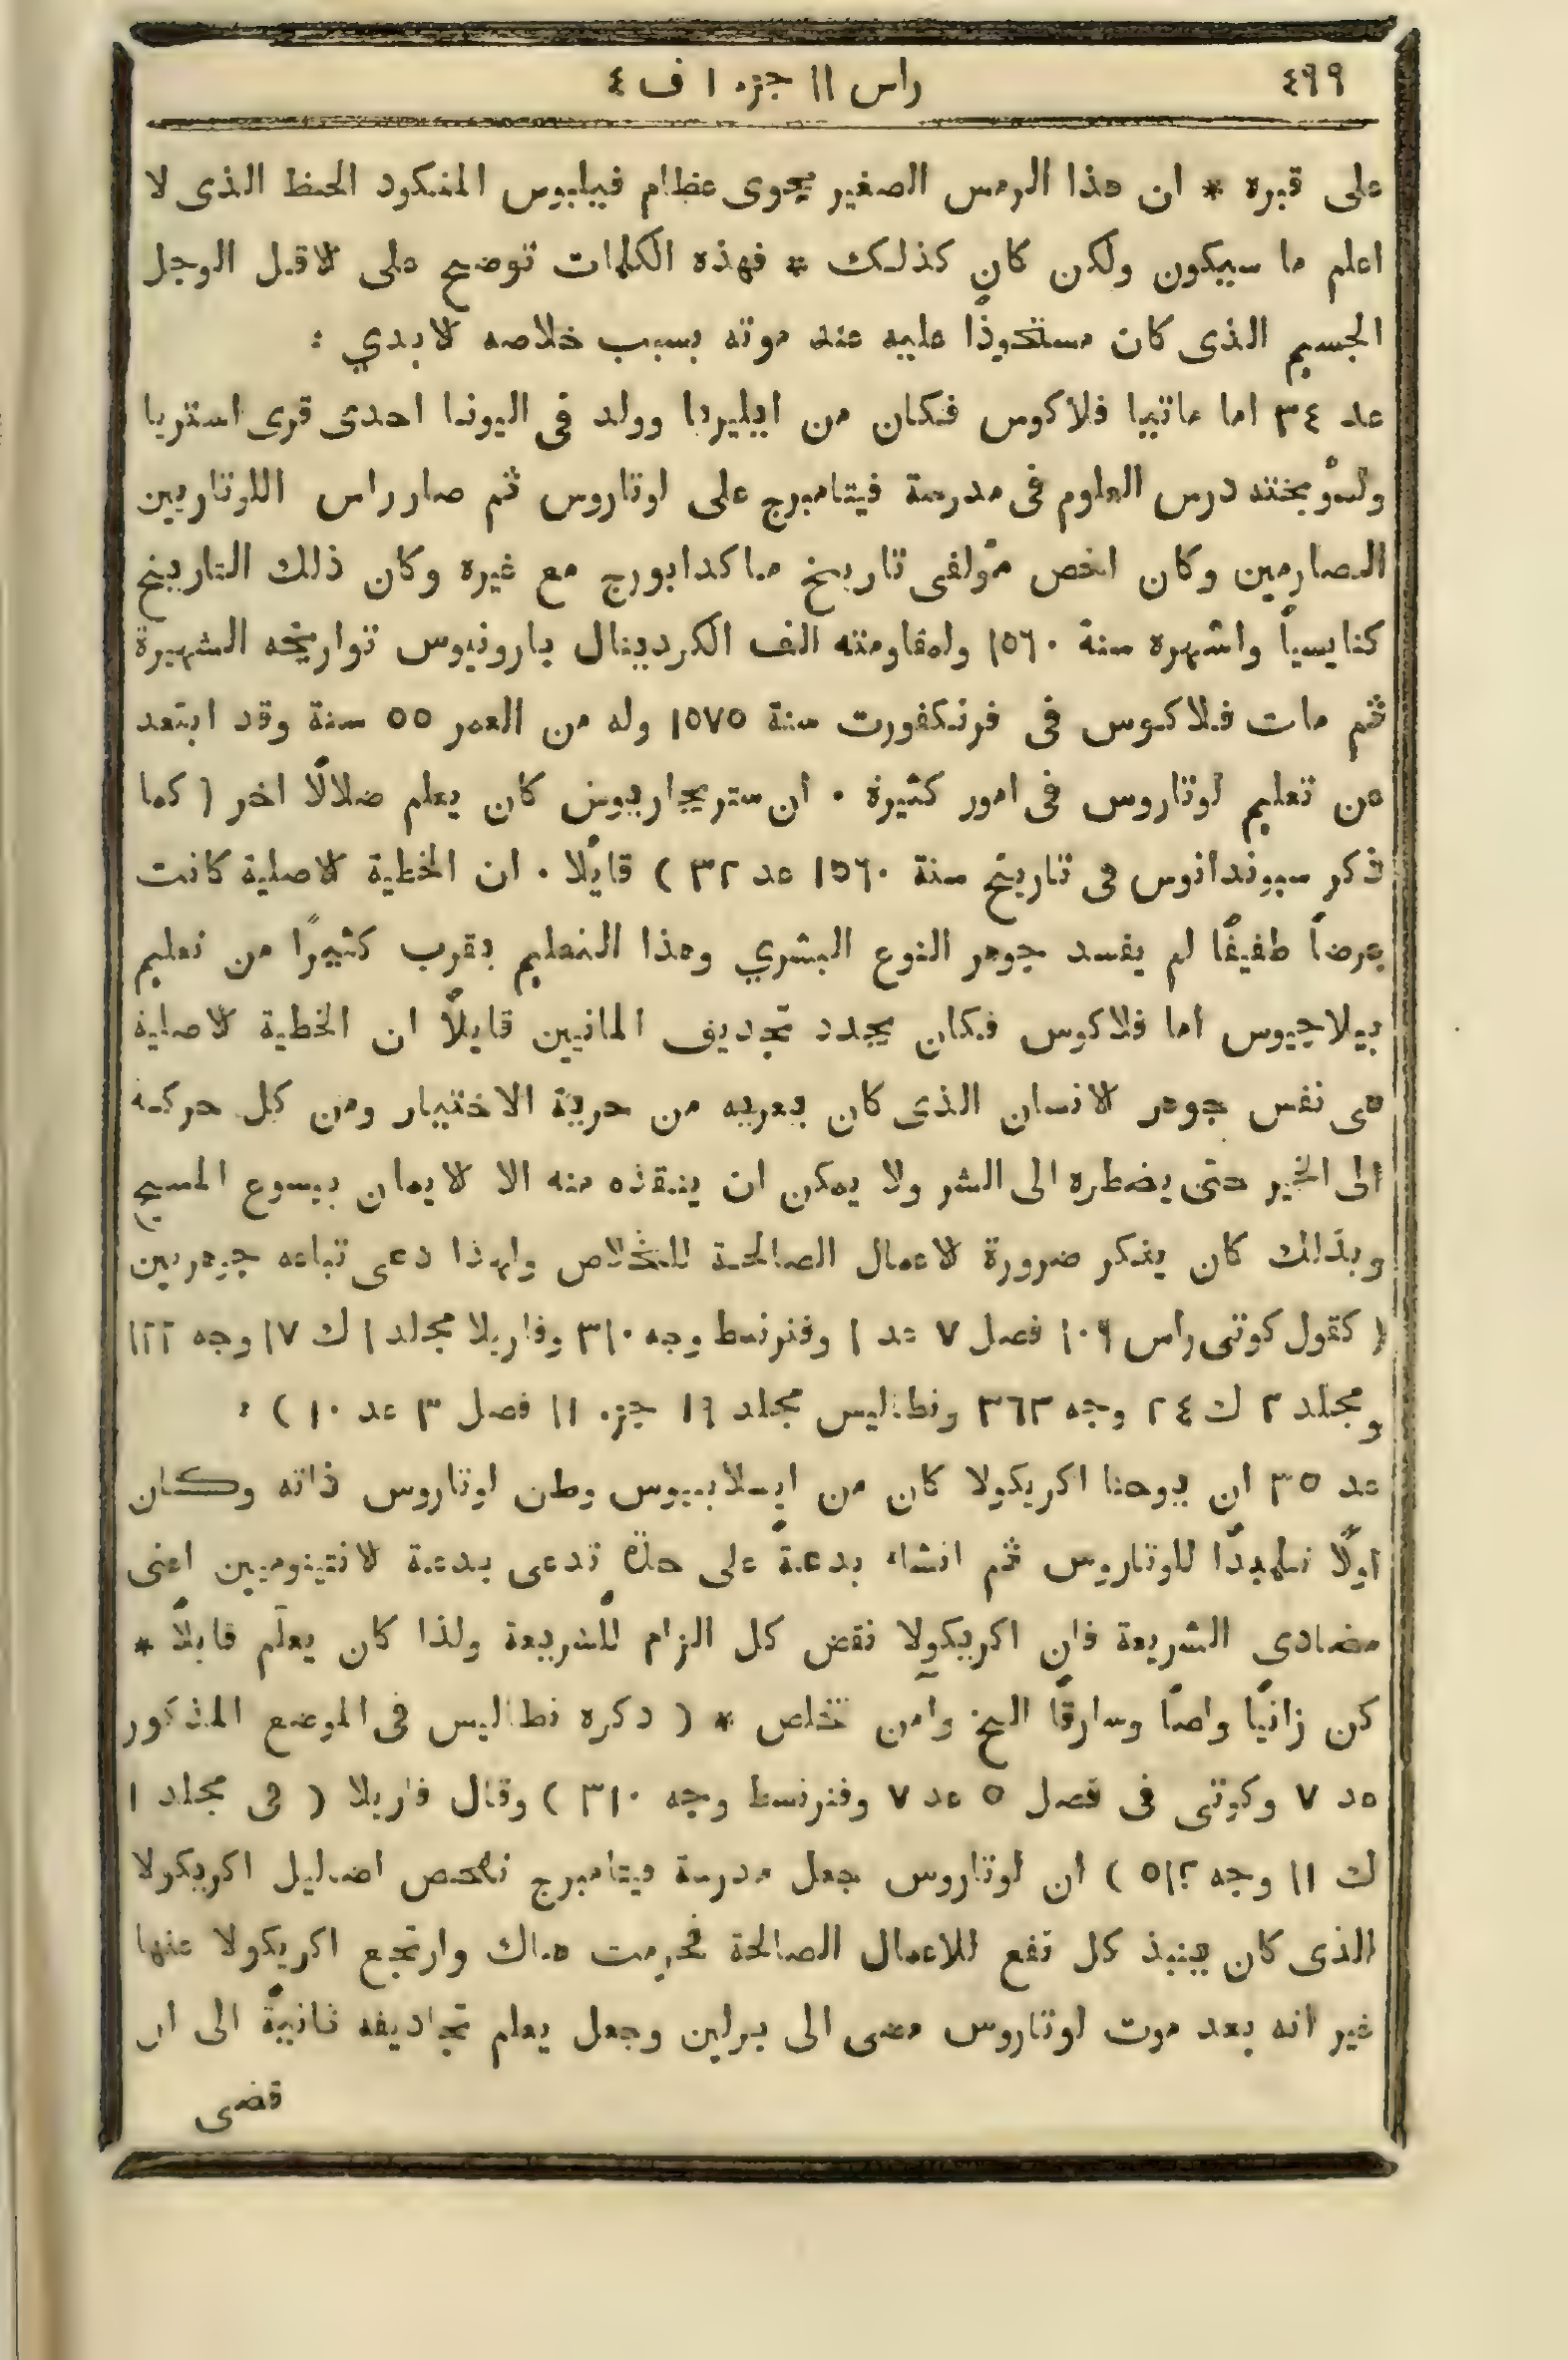 ٤٩٩
راس ١١ جزء ١ ف ٤
على قبره * ان هذا الرمس الصغير يحوى عظام فيلبوس المنكود الحظ الذى لا
اعلم ما سيكون ولكن كان كذلك * فهذه الكلمات توضح على لاقل الوجل
الجسيم الذى كان مستحوذًا عليه عند موته بسبب خلاصه لابدي :
عد ٣٤ اما ماتيا فلاكوس فكان من ايليريا وولد فى اليونا احدى قرى استريا
ولسوُبخته درس العلوم فى مدرسة فيتامبرج على لوتاروس ثم صار راس اللوتاريين
الصارمين وكان اخص مؤلفى تاريخ ماكدابورج مع غيره وكان ذلك التاريخ
كنايسياً واشهره سنة ١٥٦٠ ولمقاومته الف الكردينال بارونيوس تواريخه الشهيرة
ثم مات فلاكوس فى فرنكفورت سنة ١٥٧٥ وله من العمر ٥٥ سنة وقد ابتعد
من تعليم لوتاروس فى امور كثيرة . ان ستريجاريوس كان يعلم ضلالًا اخر ( كما
ذكر سبوندانوس فى تاريخ سنة ١٥٦٠ عد ٣٢ ) قايلًا . ان الخطية لاصلية كانت
عرضاً طفيفًا لم يفسد جوهر النوع البشري وهذا التعليم يقرب كثيرًا من تعليم
بيلاجيوس اما فلاكوس فكان يجدد تجديف المانيين قايلاً ان الخطية لاصلية
هى نفس جوهر لانسان الذى كان يعريه من حرية الاختيار ومن كل حركة
الى الخير حتى يضطره الى الشر ولا يمكن ان ينقذه منه الا لايمان بيسوع المسيح
وبذلك كان ينكر ضرورة لاعمال الصالحة للخلاص ولهذا دعى تباعه جوهريين
( كقول كوتى راس ١٠٩ فصل ٧ عد ١ وفنرنسط وجه ٣١٠ وفاريلا مجلد ١ ك ١٧ وجه
ومجلد ٢ ك ٢٤ وجه ٣٦٣ ونطاليس مجلد ١٩ جزء ١١ فصل ٣ عد ١٠ ) :
عد ٣٥ ان يوحنا اكريكولا كان من ايسلابيوس وطن لوتاروس ذاته وكان
اولًا تلميذًا للوتاروس ثم انشاء بدعةً على حدة تدعى بدعة لانتينوميين اعنى
مضادى الشريعة فان اكريكولا نقض كل الزام للشريعة ولذا كان يعلم قايلاً *
كن زانيًا ولصًا وسارقًا الخ وامن تخلص * ( ذكره نطاليس فى الموضع المذكور
عد ٧ وكوتى فى فصل ٥ عد ٧ وفنرنسط وجه ٣١٠ ) وقال فاريلا ( فى مجلد ١
ك ١١ وجه ٥١٢ ) ان لوتاروس جعل مدرسة فيتامبرج تفحص اضاليل اكريكولا
الذى كان ينبذ كل نفع للاعمال الصالحة فحرمت هناك وارتجع اكريكولا عنها
غير انه بعد موت لوتاروس مضى الى برلين وجعل يعلم تجاديفه ثانيةً الى ان
قضى